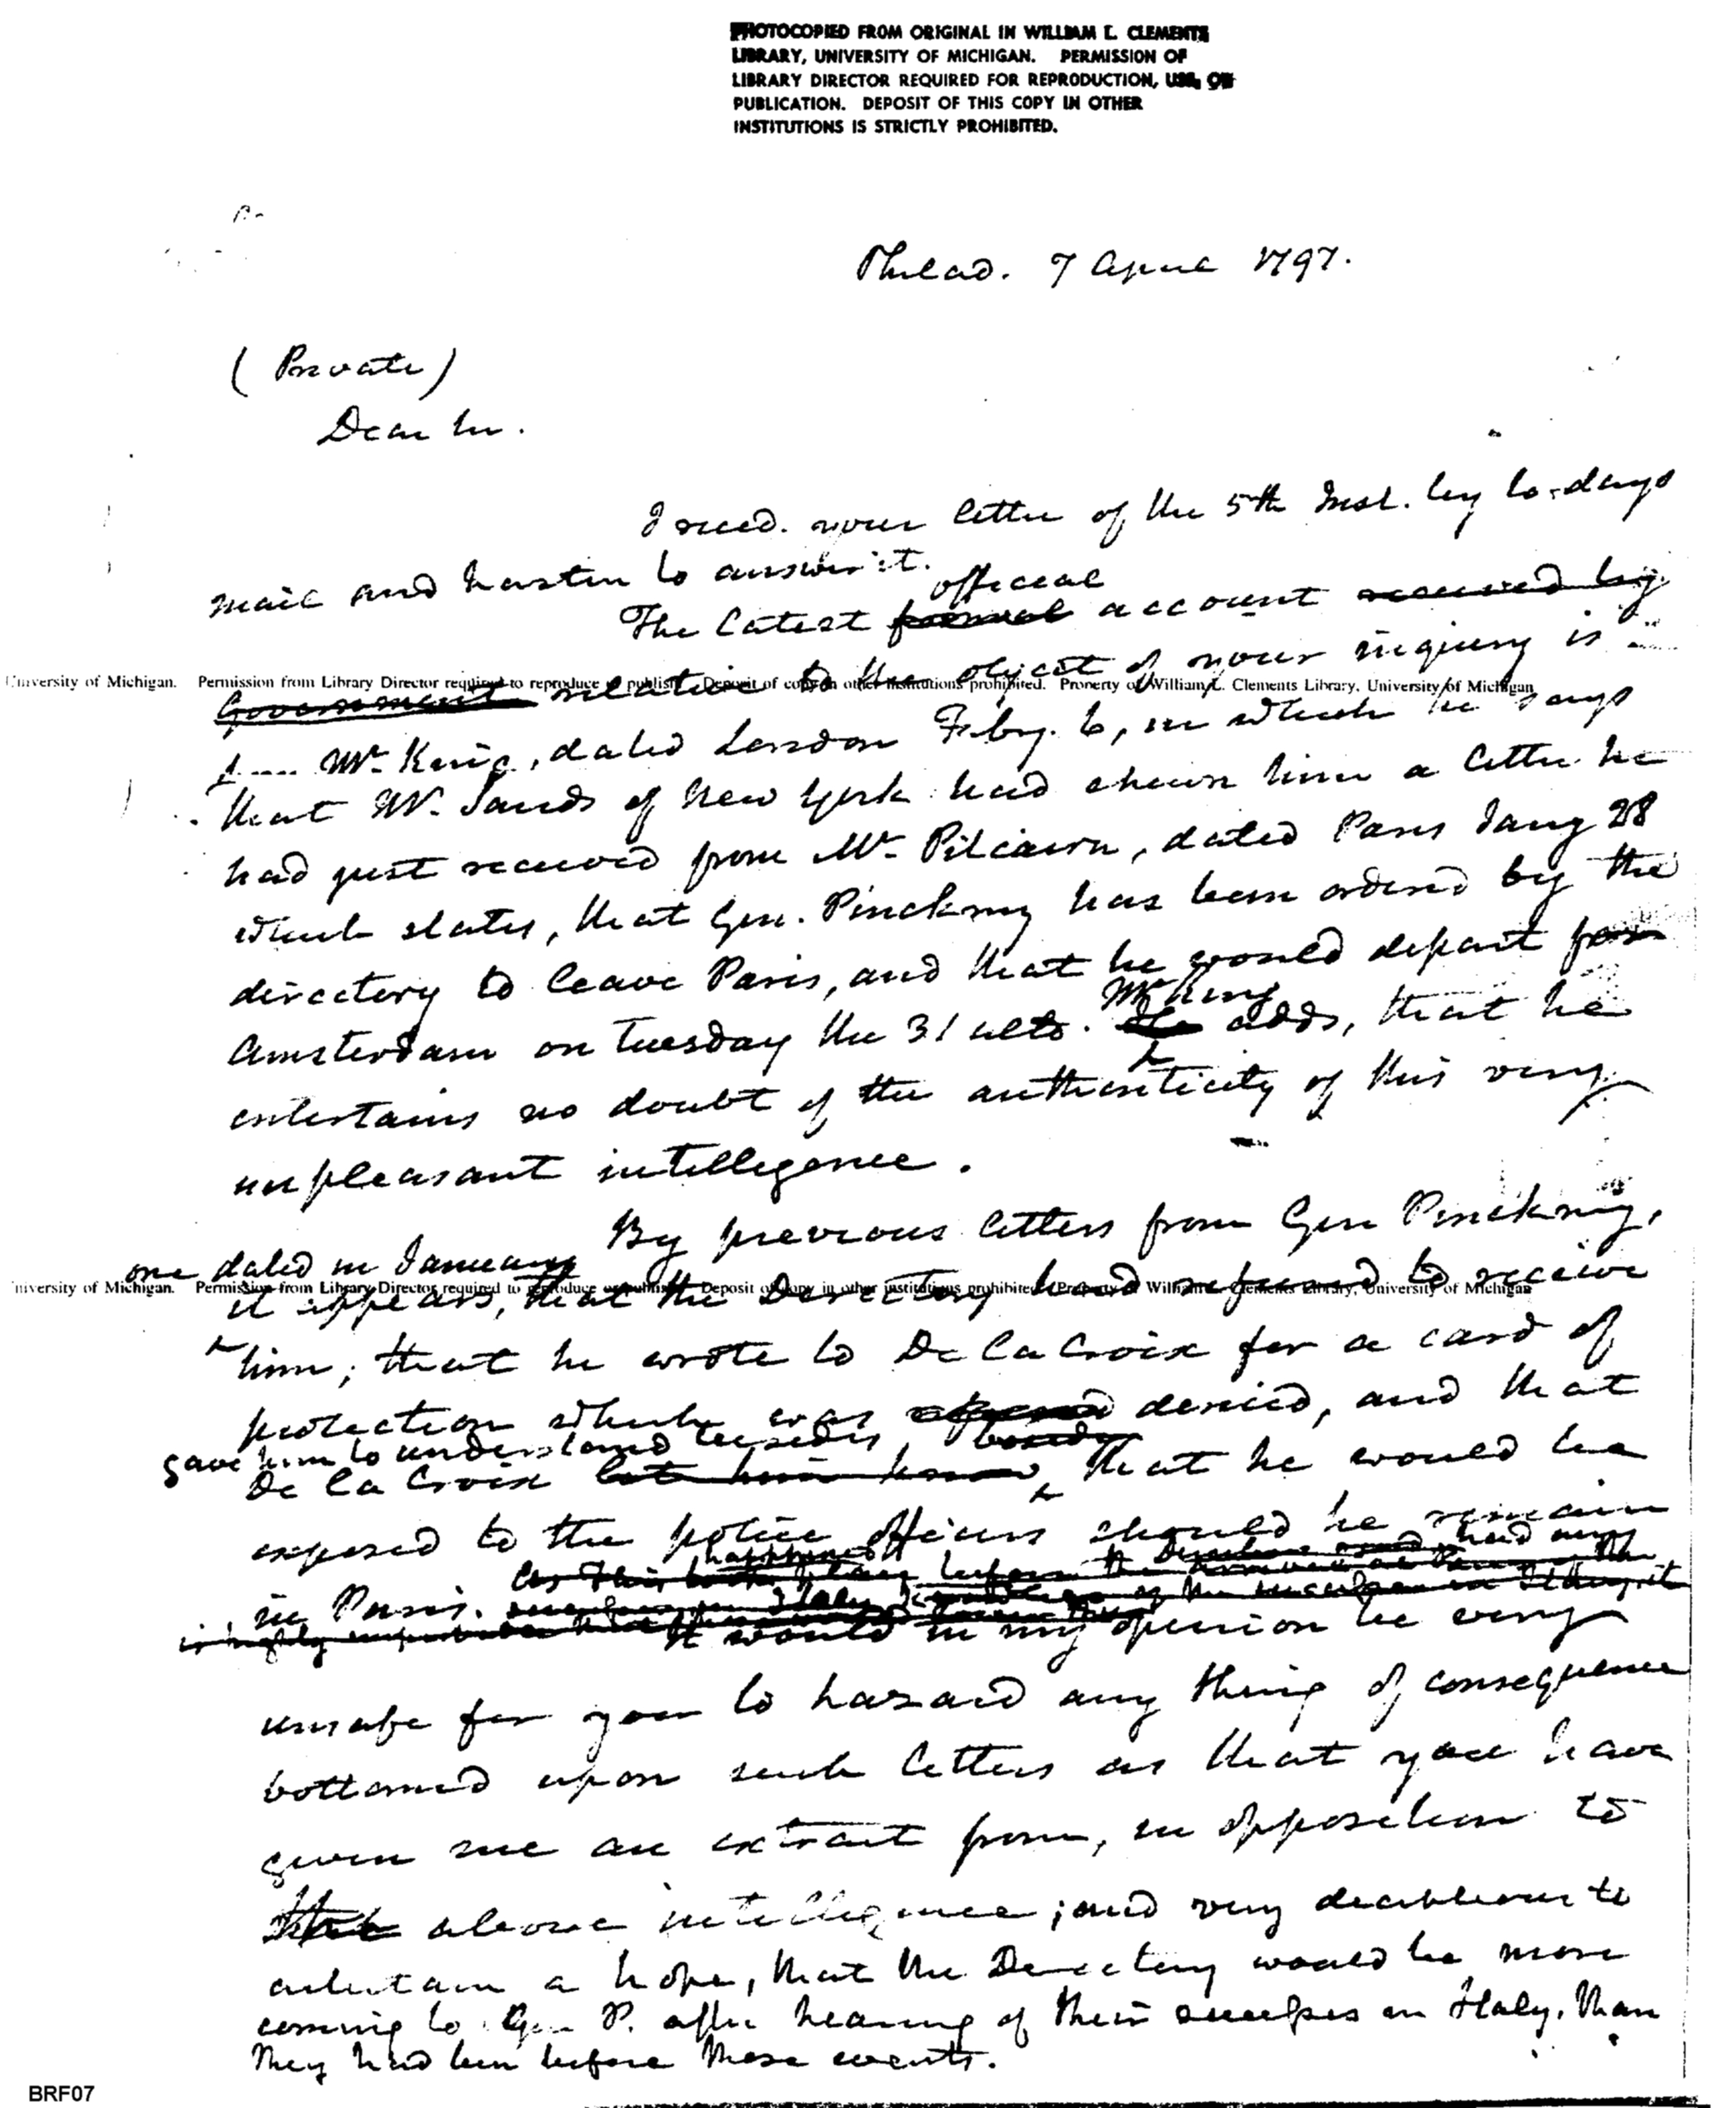 PHOTOCOPIED FROM ORIGINAL IN WILLIAM L. CLEMENTS
LIBRARY, UNIVERSITY OF MICHIGAN. PERMISSION OF
LIBRARY DIRECTOR REQUIRED FOR REPRODUCTION, USE, OR
PUBLICATION. DEPOSIT OF THIS COPY IN OTHER
INSTITUTIONS IS STRICTLY PROHIBITED.
Philad. 7 April 1797.
(Private)
Dear Sir.
I recd. your letter of the 5th Inst. by to-days
mail and hasten to answer it.
official
The latest formal account received by
University of Michigan. Permission from Library Director required to reproduce or publish. Deposit of copy in other institutions prohibited. Property of William L. Clements Library, University of Michigan
Government relative to the object of your inquiry is
Mr. King, dated London Feby. 6, in which he says
that Mr. Sands of New York had shewn him a letter he
had just received from Mr. Pitcairn, dated Paris Jany 28
which states, that Gen. Pinckney has been ordered by the
directory to leave Paris, and that he would depart for
Mr King
Amsterdam on Tuesday the 31 ulto. He adds, that he
entertains no doubt of the authenticity of this very
unpleasant intelligence.
By previous letters from Gen Pinckney,
one dated in January
University of Michigan. Permission from Library Director required to reproduce or publish. Deposit of copy in other institutions prohibited. Property of William L. Clements Library, University of Michigan
it appears, that the Directory had refused to receive
him; that he wrote to De la Croix for a card of
protection which was denied, and that
gave him to understand besides,
De la Croix let him know, that he would be
exposed to the police officers should he remain
happened before the had any
in Paris. of the in Italy, it
is highly It would in my opinion be very
unsafe for you to hazard any thing of consequence
bottomed upon such letters as that you have
given me an extract from, in opposition to
the above intelligence; and very dubious to
entertain a hope, that the Directory would be more
coming to Gen P. after hearing of their success in Italy, than
they had been before these events.
BRF07